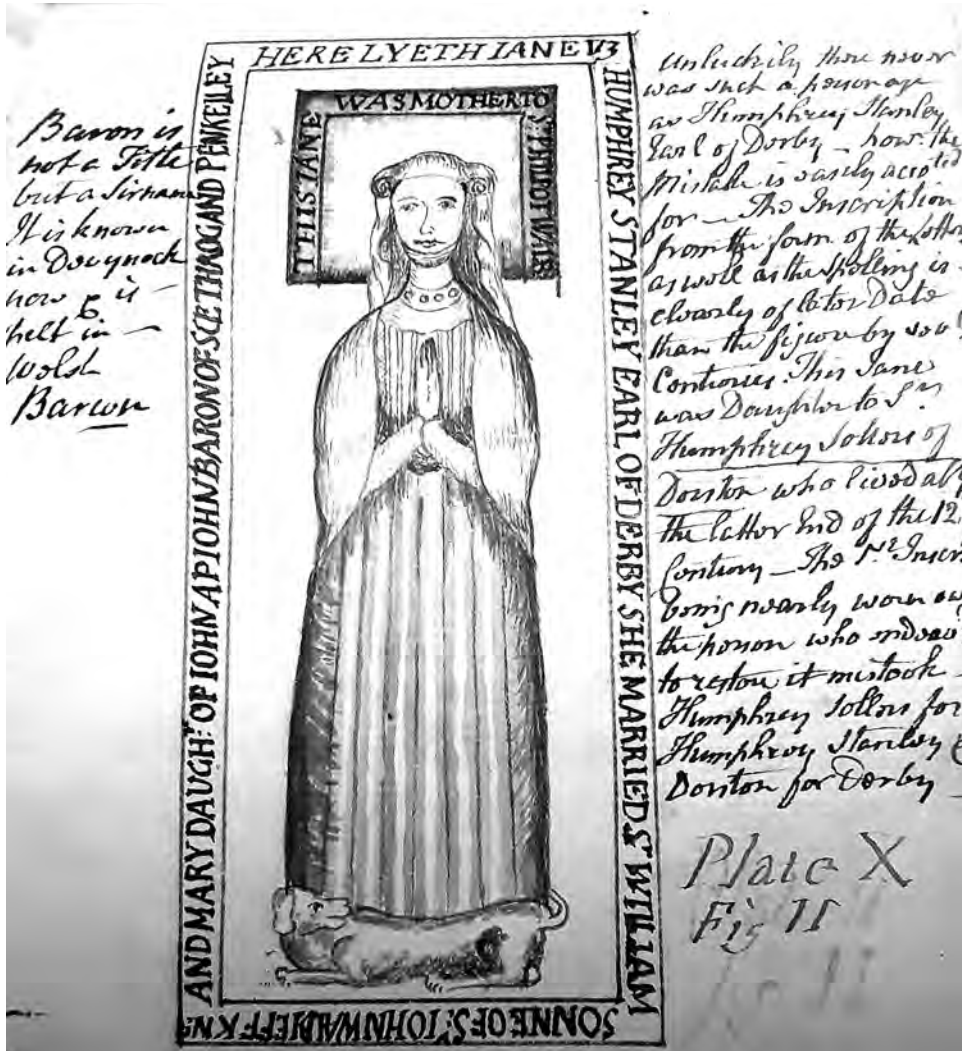 Baron is
not a Title
but a Sirname
It is known
in Devynock
now & is
spelt in
Welsh
Barwn
HERE LYETH IANE VZ
HUMPHREY STANLEY EARL OF DERBY SHE MARRIED Sr WILLIAM
SONNE OF Sr IOHN WALBEIFF KNt
AND MARY DAUGHr OF IOHN AP IOHN BARON OF SCETHROG AND PENKEILEY
THIS IANE
WAS MOTHER TO
Sr PHILPOT WALB
unluckily there never
was such a personage
as Humphrey Stanley
Earl of Derby — how: the
Mistake is easily acco:ted
for — The Inscription
from the form of the letters
as well as the spelling is
clearly of later Date
than the figure by sev
Centuries. This Jane
was Daughter to Sr
Humphrey Sollers of
Dorston who lived abt
the latter End of the 12
Century — The Inscr
being nearly worn aw
the person who endeav
to restore it mistook
Humphrey Sollers for
Humphrey Stanley &
Dorston for Derby
Plate X
Fig II